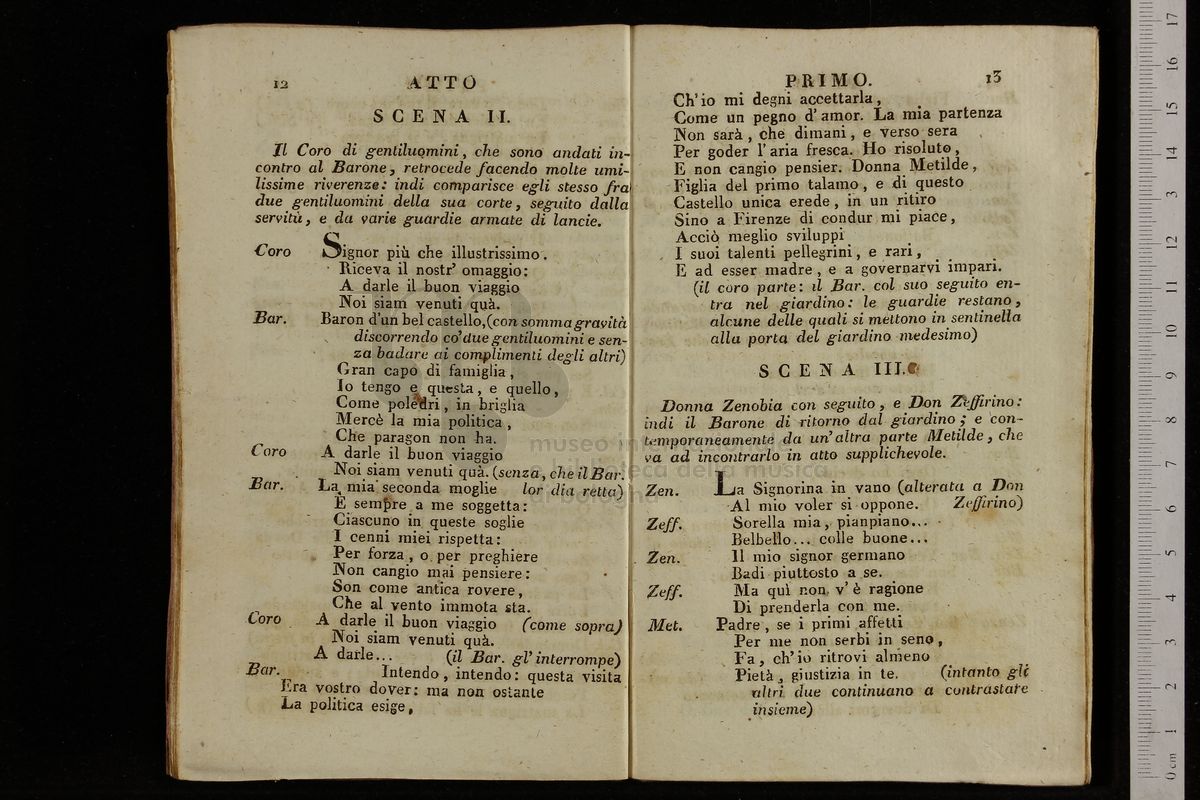 12 ATTO
SCENA II.
Il Coro di gentiluomini, che sono andati in-
contro al Barone, retrocede facendo molte umi-
lissime riverenze: indi comparisce egli stesso fra
due gentiluomini della sua corte, seguito dalla
servitù, e da varie guardie armate di lancie.
Coro Signor più che illustrissimo.
Riceva il nostr' omaggio:
A darle il buon viaggio
Noi siam venuti quà.
Bar. Baron d'un bel castello,(con somma gravità
discorrendo co' due gentiluomini e sen-
za badare ai complimenti degli altri)
Gran capo di famiglia,
Io tengo e questa, e quello,
Come poledri, in briglia
Mercè la mia politica,
Che paragon non ha.
Coro A darle il buon viaggio
Noi siam venuti quà. (senza, che il Bar.
Bar. La mia seconda moglie lor dia retta)
E sempre a me soggetta:
Ciascuno in queste soglie
I cenni miei rispetta:
Per forza, o per preghiere
Non cangio mai pensiere:
Son come antica rovere,
Che al vento immota sta.
Coro A darle il buon viaggio (come sopra)
Noi siam venuti quà.
A darle... (il Bar. gl' interrompe)
Bar. Intendo, intendo: questa visita
Era vostro dover: ma non ostante
La politica esige,
PRIMO. 13
Ch' io mi degni accettarla,
Come un pegno d' amor. La mia partenza
Non sarà, che dimani, e verso sera
Per goder l' aria fresca. Ho risoluto,
E non cangio pensier. Donna Metilde,
Figlia del primo talamo, e di questo
Castello unica erede, in un ritiro
Sino a Firenze di condur mi piace,
Acciò meglio sviluppi
I suoi talenti pellegrini, e rari,
E ad esser madre, e a governarvi impari.
(il coro parte: il Bar. col suo seguito en-
tra nel giardino: le guardie restano,
alcune delle quali si mettono in sentinella
alla porta del giardino medesimo)
SCENA III.
Donna Zenobia con seguito, e Don Zeffirino:
indi il Barone di ritorno dal giardino; e con-
temporaneamente da un' altra parte Metilde, che
va ad incontrarlo in atto supplichevole.
Zen. La Signorina in vano (alterata a Don
Al mio voler si oppone. Zeffirino)
Zeff. Sorella mia, pianpiano...
Belbello... colle buone...
Zen. Il mio signor germano
Badi piuttosto a se.
Zeff. Ma quì non v' è ragione
Di prenderla con me.
Met. Padre, se i primi affetti
Per me non serbi in seno,
Fa, ch' io ritrovi almeno
Pietà, giustizia in te. (intanto gli
altri due continuano a contrastare
insieme)
museo
biblioteca della musica
di bologna
0 cm 1 2 3 4 5 6 7 8 9 10 11 12 13 14 15 16 17